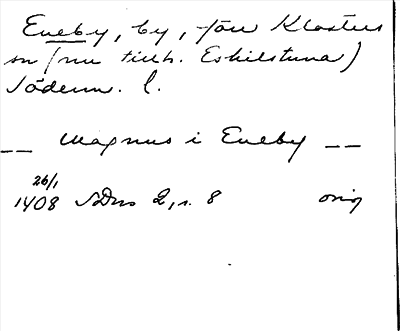 Eneby, by, förr Klosters
sn (nu tillh. Eskilstuna)
Söderm. l.
__ Magnus i Eneby __
26/1
1408 SDns 2, s. 8 orig